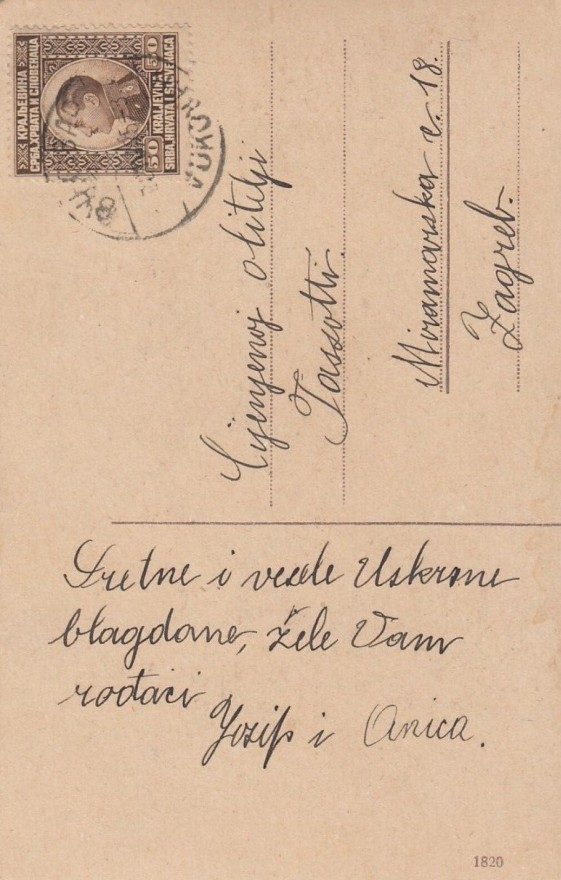 КРАЉЕВИНА
СРБА, ХРВАТА И СЛОВЕНАЦА
50
50
KRALJEVINA
SRBA, HRVATA I SLOVENACA
VUKOVAR
Cijenjenoj obitelji
Tassotti.
Miramarska c. 18.
Zagreb.
Sretne i vesele Uskrsne
blagdane, žele Vam
rođaci
Josip i Anica.
1820